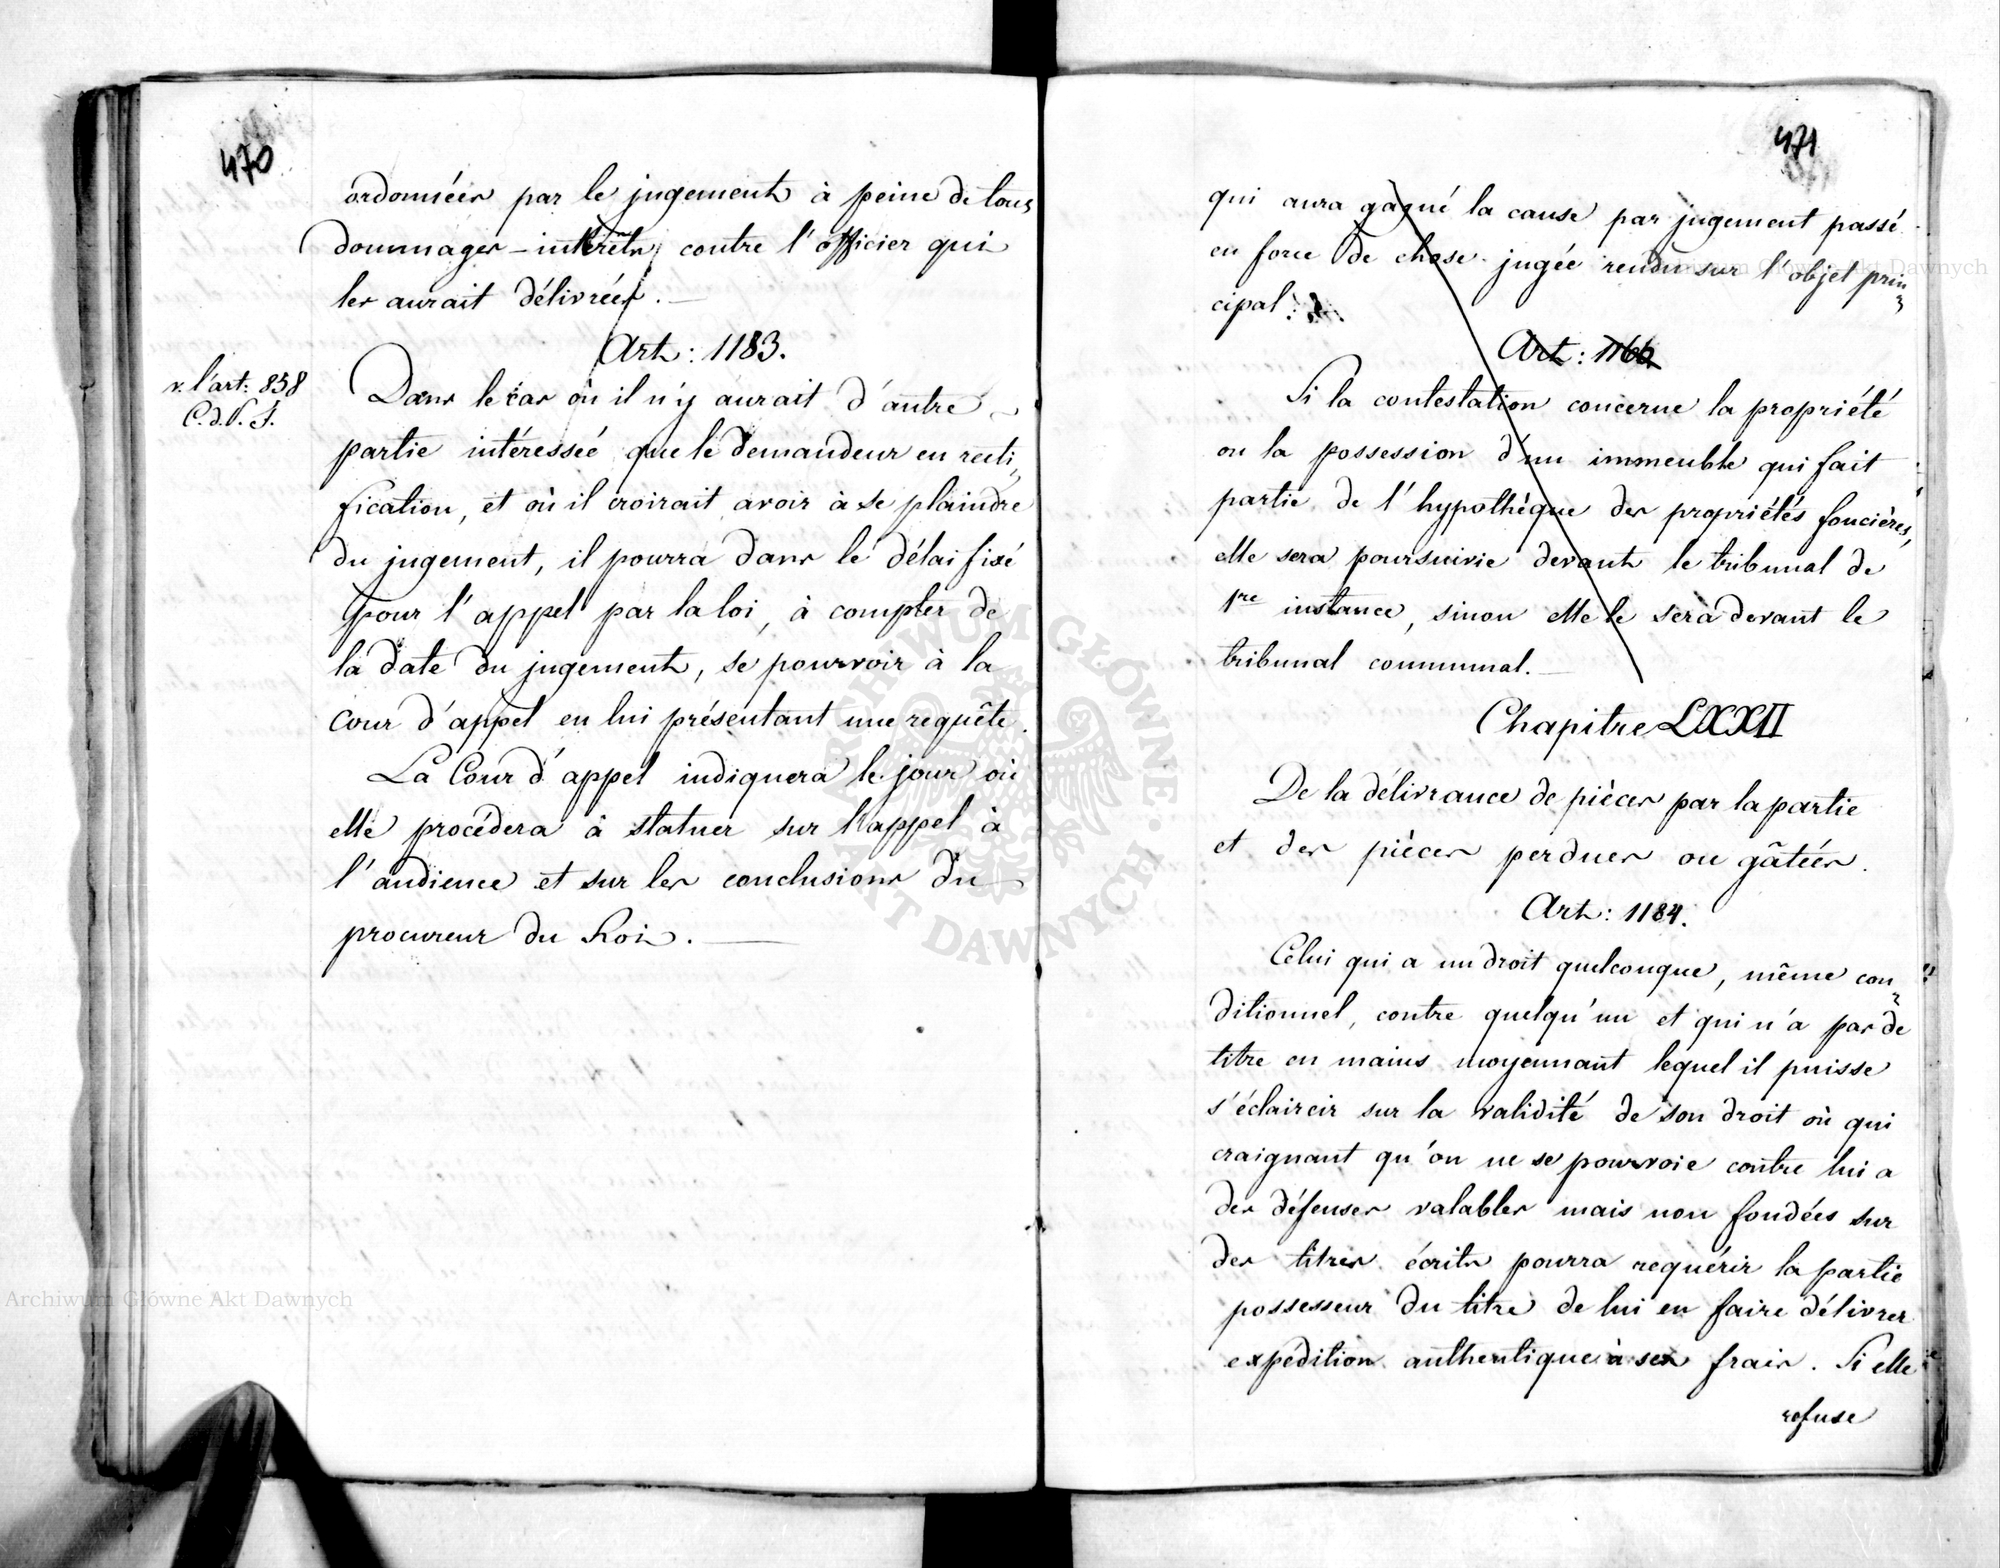 470
ordonnées par le jugement à peine de tous
dommages-intérêts contre l'officier qui
les aurait délivrées.
Art: 1183.
v. l'art: 858
C.d.P. f.
Dans le cas où il n'y aurait d'autre
partie intéressée que le demandeur en recti,
fication, et où il croirait avoir à se plaindre
du jugement, il pourra dans le délai fixé
pour l'appel par la loi, à compter de
la date du jugement, se pourvoir à la
Cour d'appel en lui présentant une requête.
La Cour d'appel indiquera le jour où
elle procédera à statuer sur l'appel à
l'audience et sur les conclusions du
procureur du Roi.
471
qui aura gagné la cause par jugement passé
en force de chose jugée rendu sur l'objet prin
cipal.
Art: 1166
Si la contestation concerne la propriété
ou la possession d'un immeuble qui fait
partie de l'hypothèque des propriétés foncières,
elle sera poursuivie devant le tribunal de
1re instance, sinon elle le sera devant le
tribunal communal.
Chapitre LXXII
De la délivrance de pièces par la partie
et des pièces perdues ou gâtées.
Art: 1184.
Celui qui a un droit quelconque, même con
ditionnel, contre quelqu'un et qui n'a pas de
titre en mains moyennant lequel il puisse
s'éclaircir sur la validité de son droit où qui
craignant qu'on ne se pourvoie contre lui a
des défenses valables mais non fondées sur
des titres écrits pourra requérir la partie
possesseur du titre de lui en faire délivrer
expédition authentique à ses frais. Si elle
refuse
Archiwum Główne Akt Dawnych
Archiwum Główne Akt Dawnych
ARCHIWUM GŁÓWNE AKT DAWNYCH